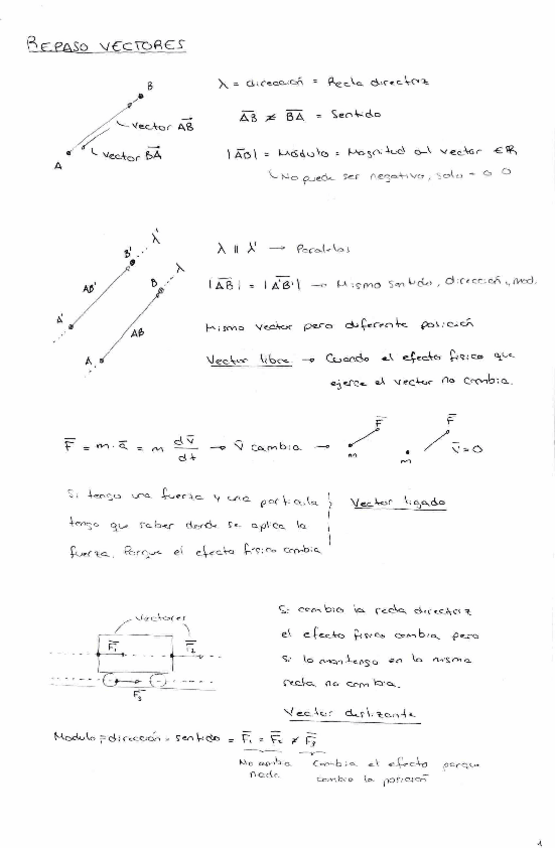 REPASO VECTORES
B
λ = dirección = Recta directriz
vector AB
AB ≠ BA = Sentido
vector BA
|AB| = Módulo = Magnitud del vector ∈ ℝ
A
No puede ser negativo, solo
λ'
B'
λ ∥ λ' → Paralelas
λ
B
AB'
|AB| = |A'B'| → Mismo sentido, dirección, mod.
A'
AB
Mismo vector pero diferente posición
A
Vector libre → Cuando el efecto físico que
ejerce el vector no cambia.
F F
F = m·a = m dv/dt → v cambia →
m m v=0
Si tengo una fuerza y una partícula
Vector ligado
tengo que saber donde se aplica la
fuerza. Porque el efecto físico cambia
Vectores
F1 F2
F3
Si cambio la recta directriz
el efecto físico cambia, pero
si lo mantengo en la misma
recta no cambia.
Vector deslizante
Modulo = dirección = sentido = F1 = F2 ≠ F3
No cambia nada
Cambia el efecto porque
cambio la posición
1